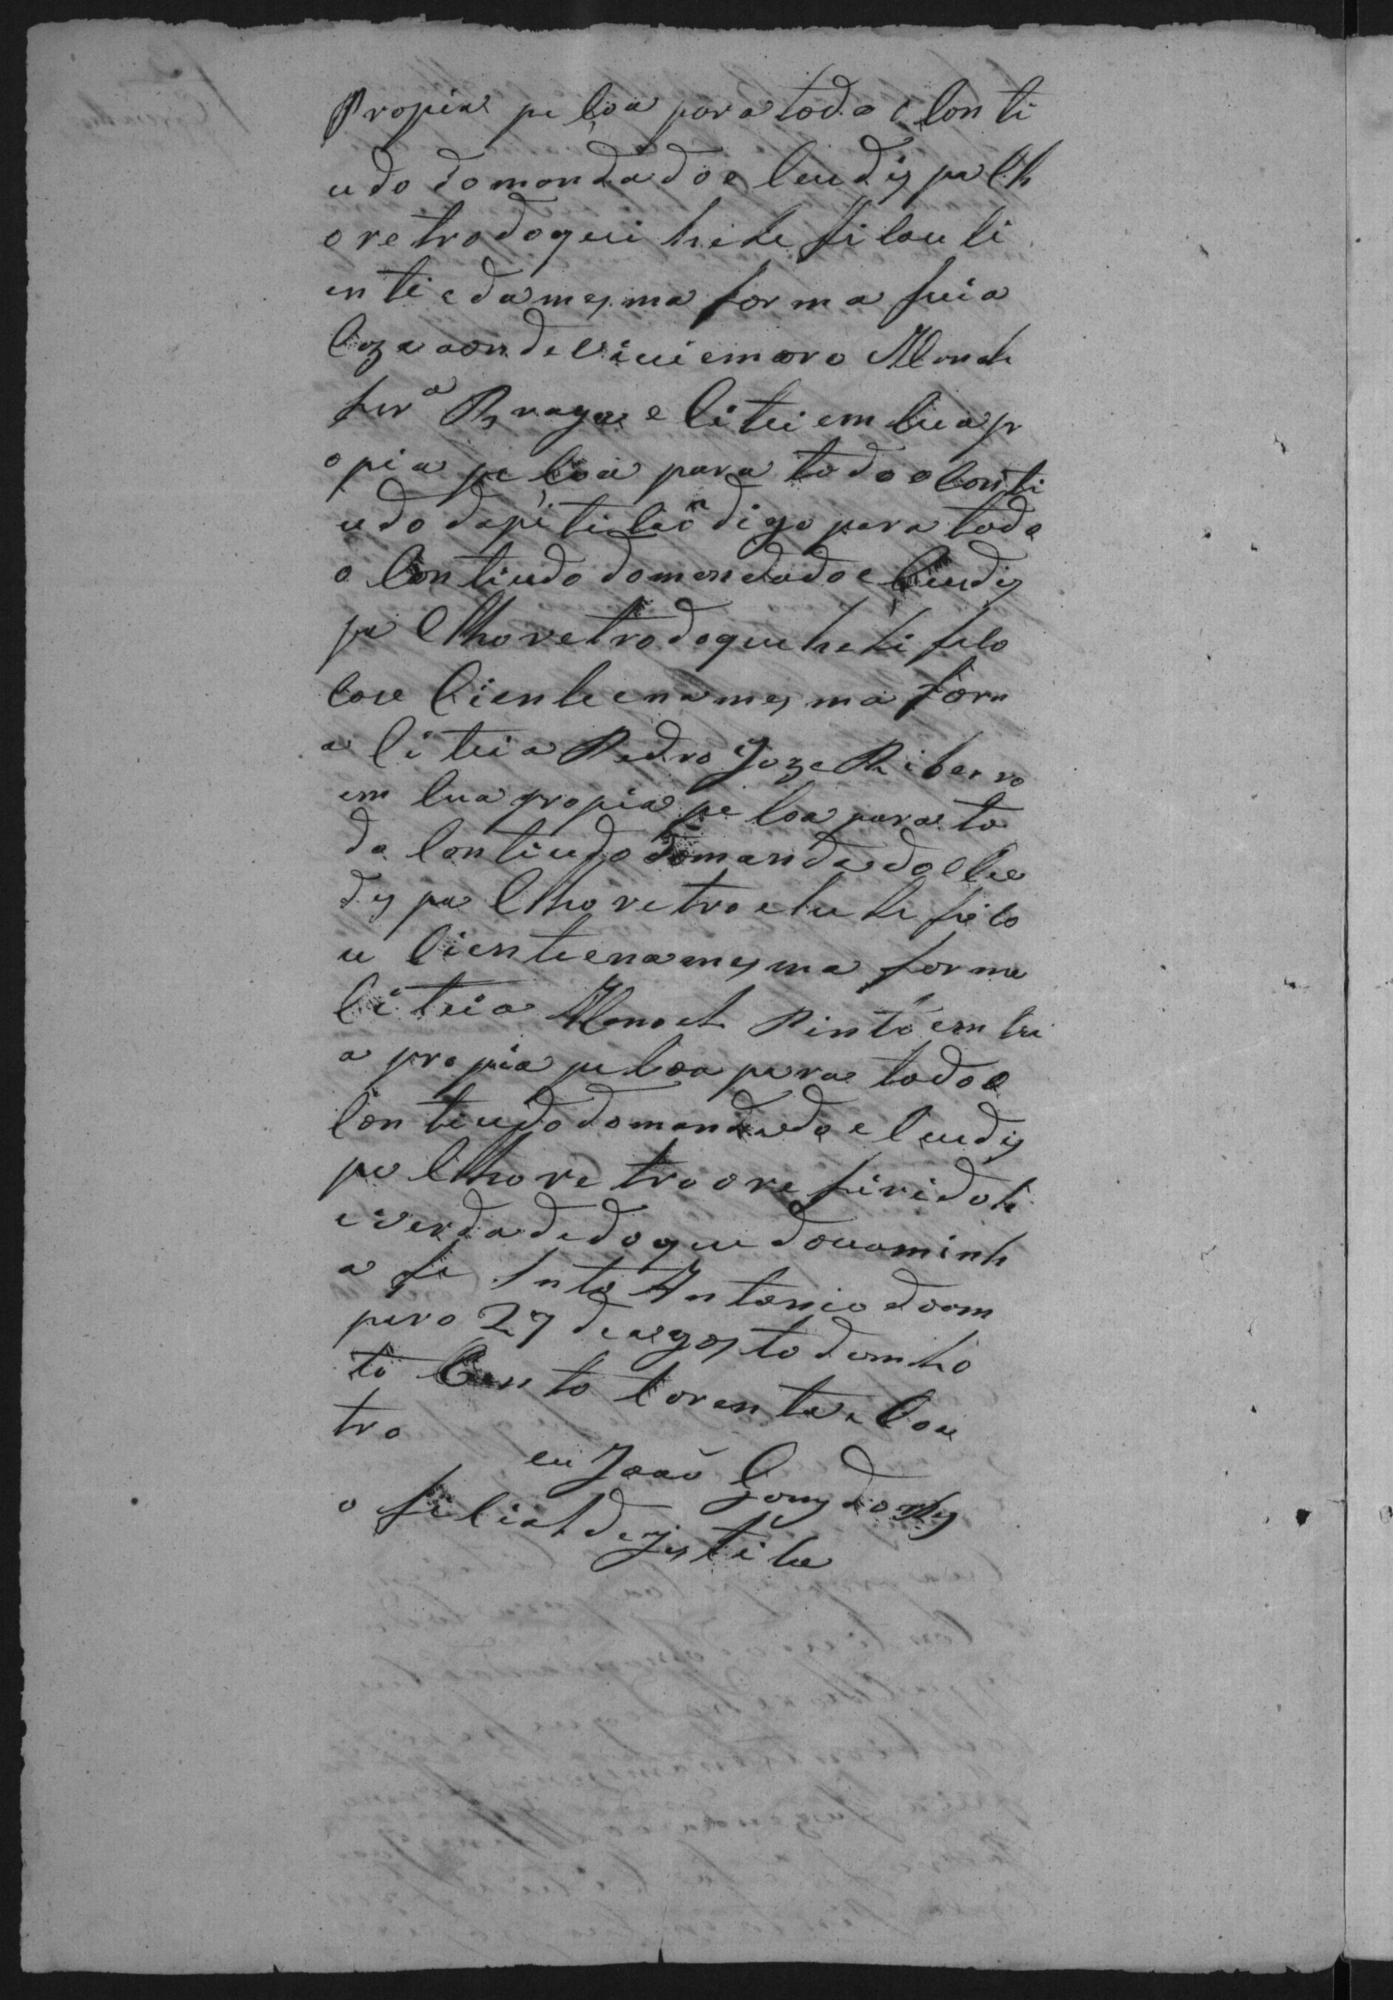 Propia peçoa para todo o Conti
udo domandado e Seu dis paCh
o retro do que hele ficou Ci
ente e da mesma forma fui a
Caza aonde vivi emora Manoel
ferª Braga e Citei em Sua pr
opia peçoa para todo o Conti
udo da peticaõ digo para todo
o Contiudo do mandado e Seu dis
pa Cho retro do que hele fico
Cou Ciente e na mesma form
a Citei a Pedro Joze Ribeiro
em Sua propia peSoa para to
do Contiudo do mandado e Seu
dis pa Cho retro e hele fico
u Ciente e na mesma forma
Citei a Manoel Pinto em Su
a propia peSoa para todo o
Contiudo do mandado e Seu dis
pa Cho retro o referido h
e verdade do que dou a minh
a fe Santo Antonio do am
paro 27 de agosto de mil o
to Cento Corenta e Coa
tro
eu João Gonçz
o ficial de justica